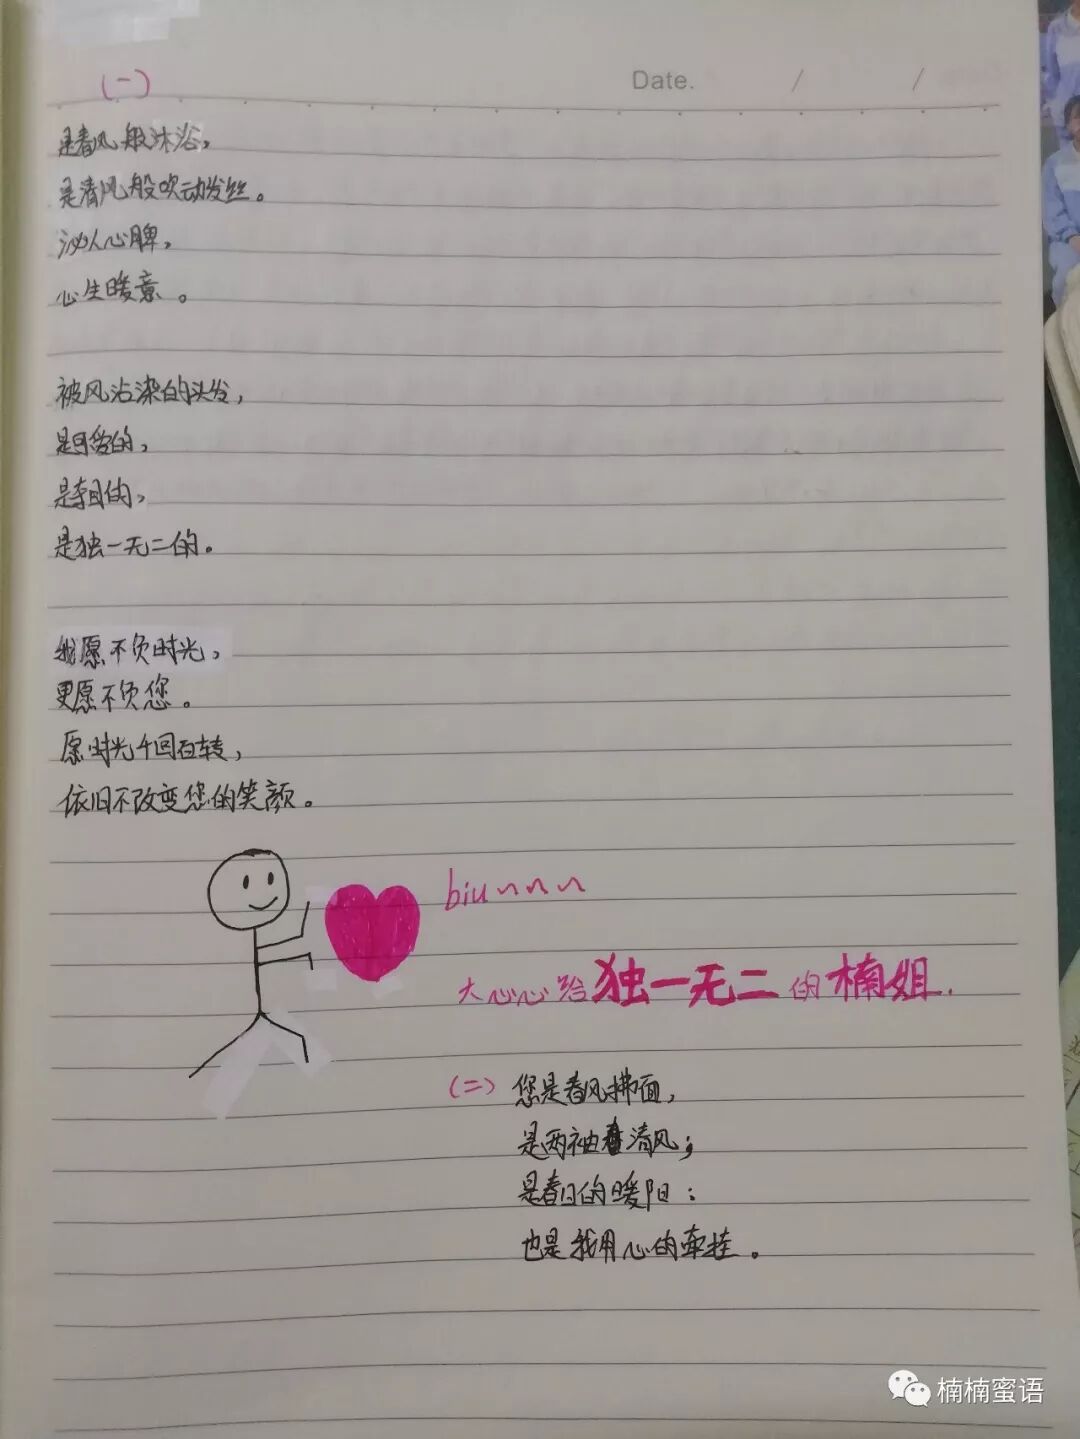 (一)
Date. / /
是春风般沐浴,
是清风般吹动发丝。
沁人心脾,
心生暖意。
被风沾染的头发,
是可爱的,
的,
是独一无二的。
我愿不负时光,
更愿不负您。
愿时光千回百转,
依旧不改变您的笑颜。
biu~~~
大心心给独一无二的楠姐.
(二) 您是春风拂面,
是两袖清风;
是春日的暖阳:
也是我用心的牵挂。
楠楠蜜语